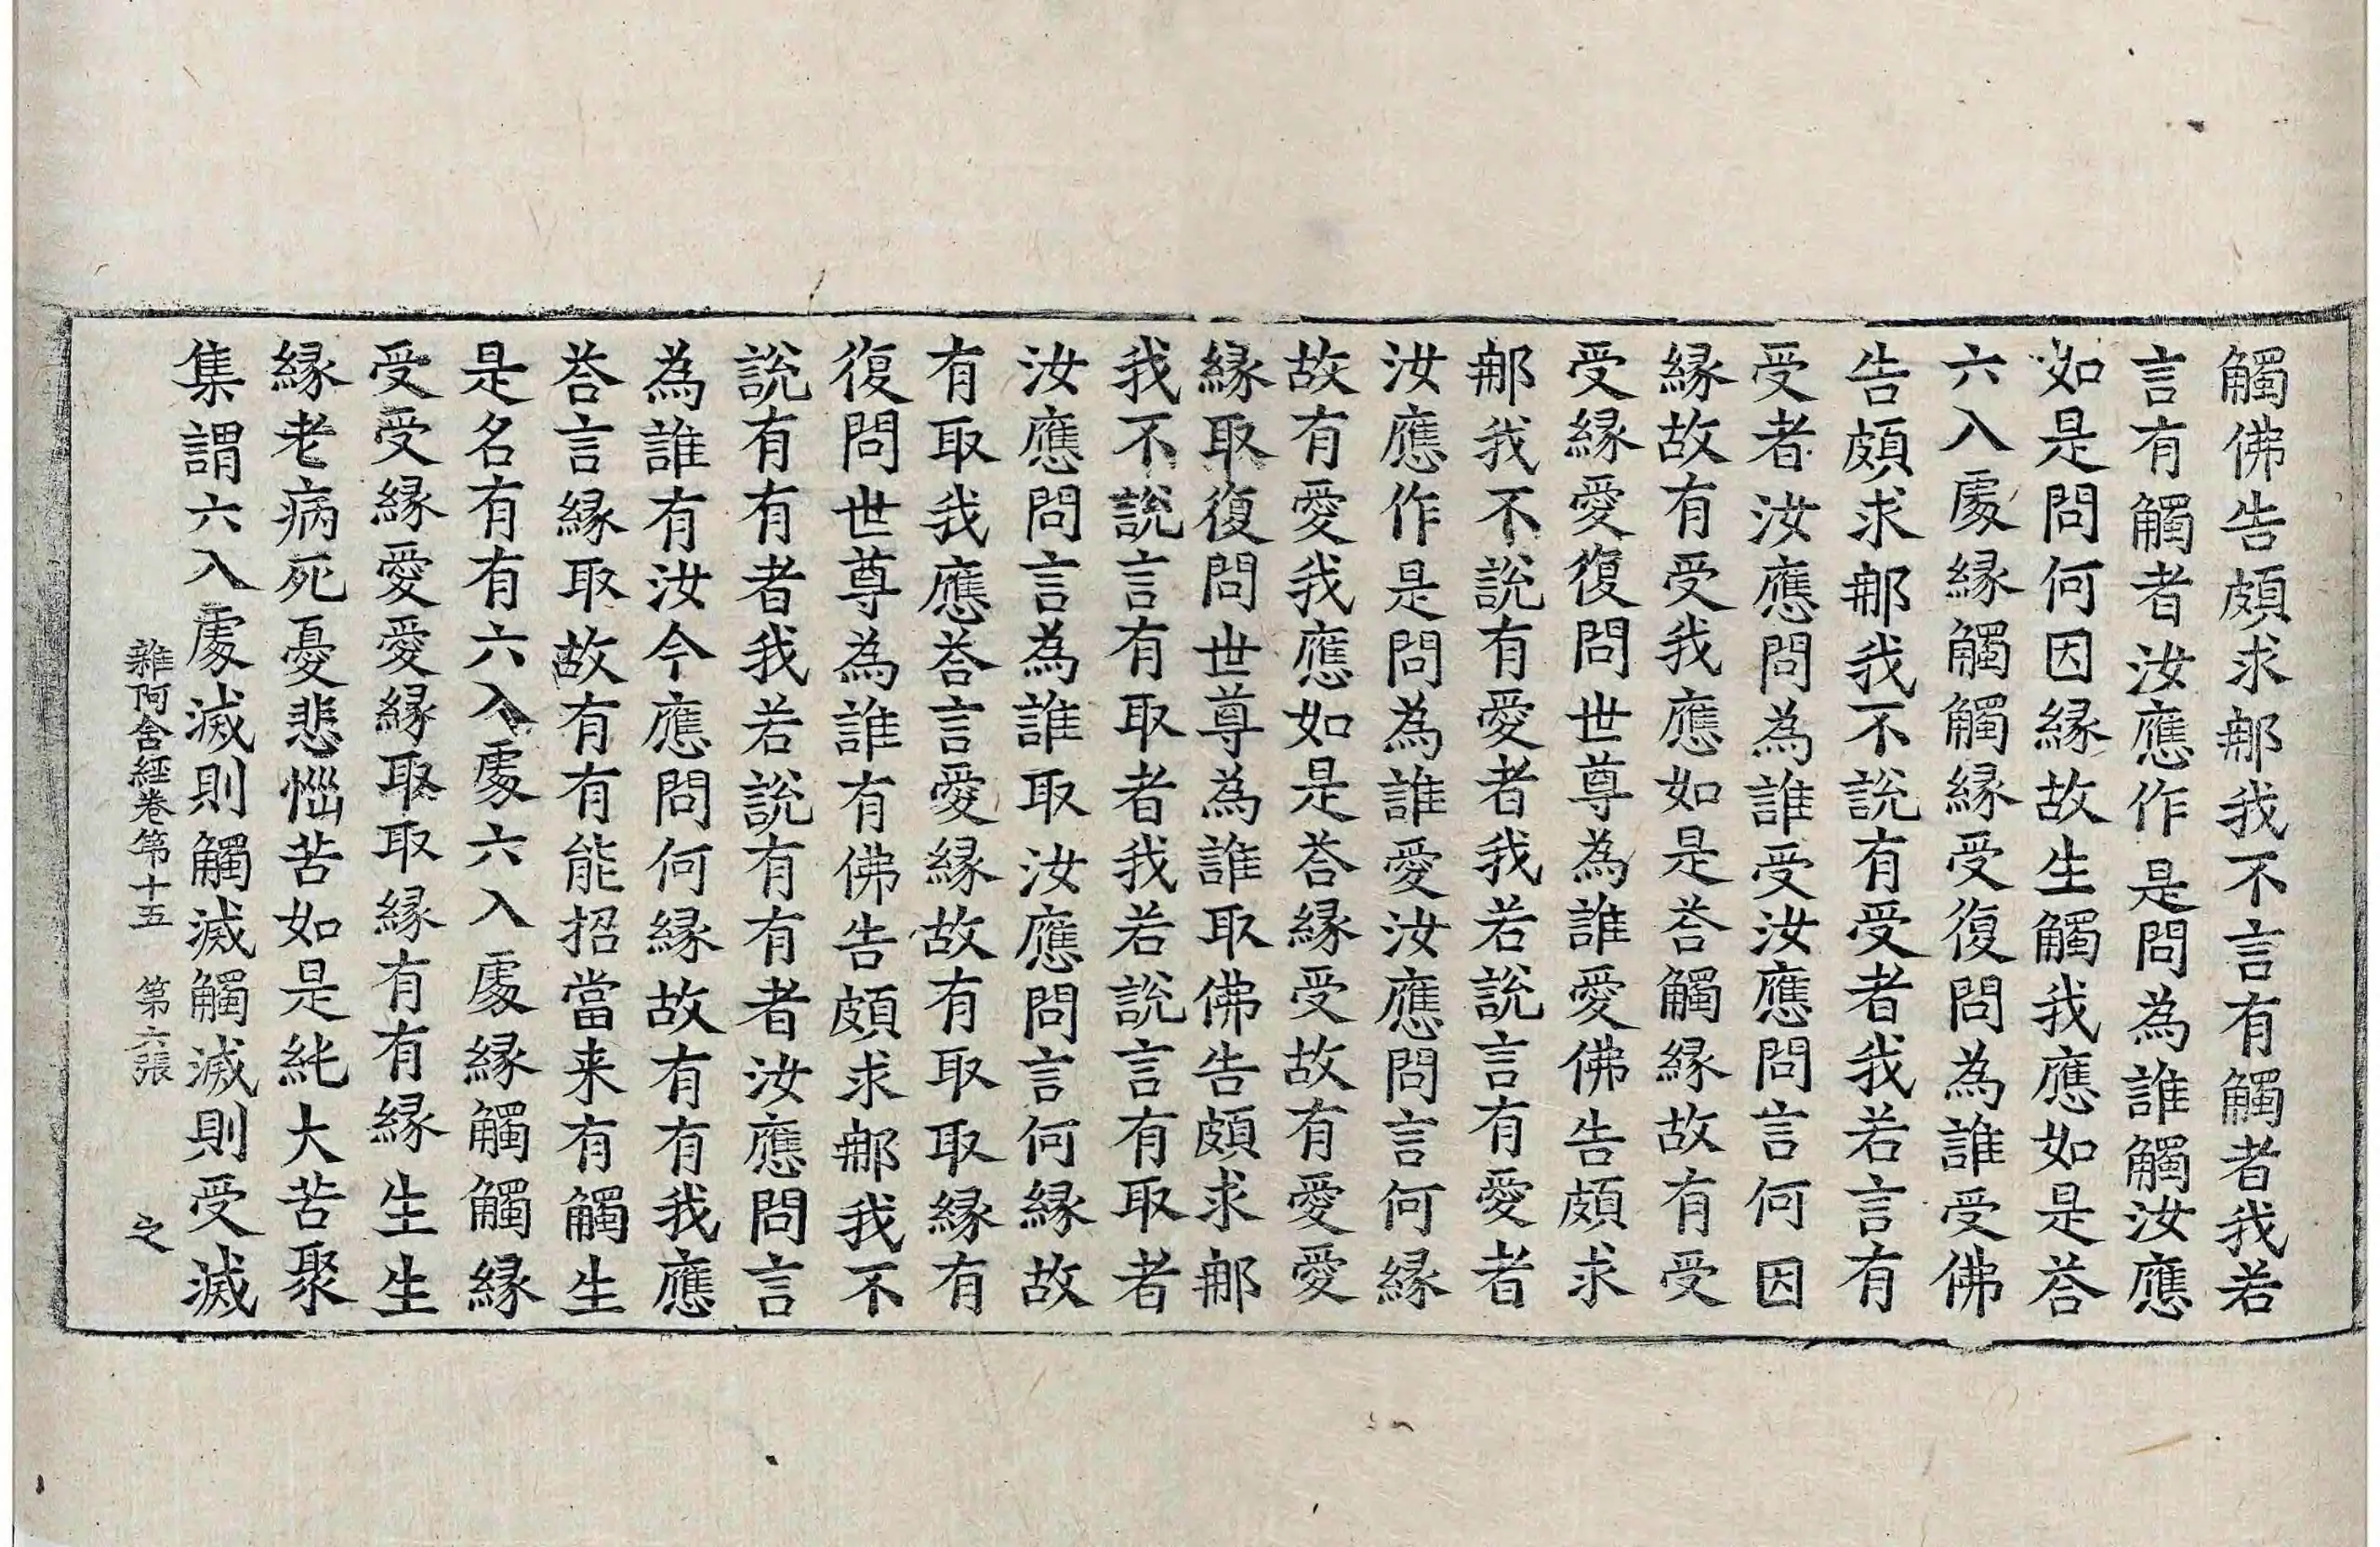 觸佛告頗求那我不言有觸者我若
言有觸者汝應作是問為誰觸汝應
如是問何因緣故生觸我應如是荅
六入處緣觸觸緣受復問為誰受佛
告頗求那我不說有受者我若言有
受者汝應問為誰受汝應問言何因
緣故有受我應如是荅觸緣故有受
受緣愛復問世尊為誰愛佛告頗求
那我不說有愛者我若說言有愛者
汝應作是問為誰愛汝應問言何緣
故有愛我應如是荅緣受故有愛愛
緣取復問世尊為誰取佛告頗求那
我不說言有取者我若說言有取者
汝應問言為誰取汝應問言何緣故
有取我應荅言愛緣故有取取緣有
復問世尊為誰有佛告頗求那我不
說有有者我若說有有者汝應問言
為誰有汝今應問何緣故有有我應
荅言緣取故有有能招當来有觸生
是名有有六入處六入處緣觸觸緣
受受緣愛愛緣取取緣有有緣生生
緣老病死憂悲惱苦如是純大苦聚
集謂六入處滅則觸滅觸滅則受滅
雜阿含經卷第十五 第六張 之